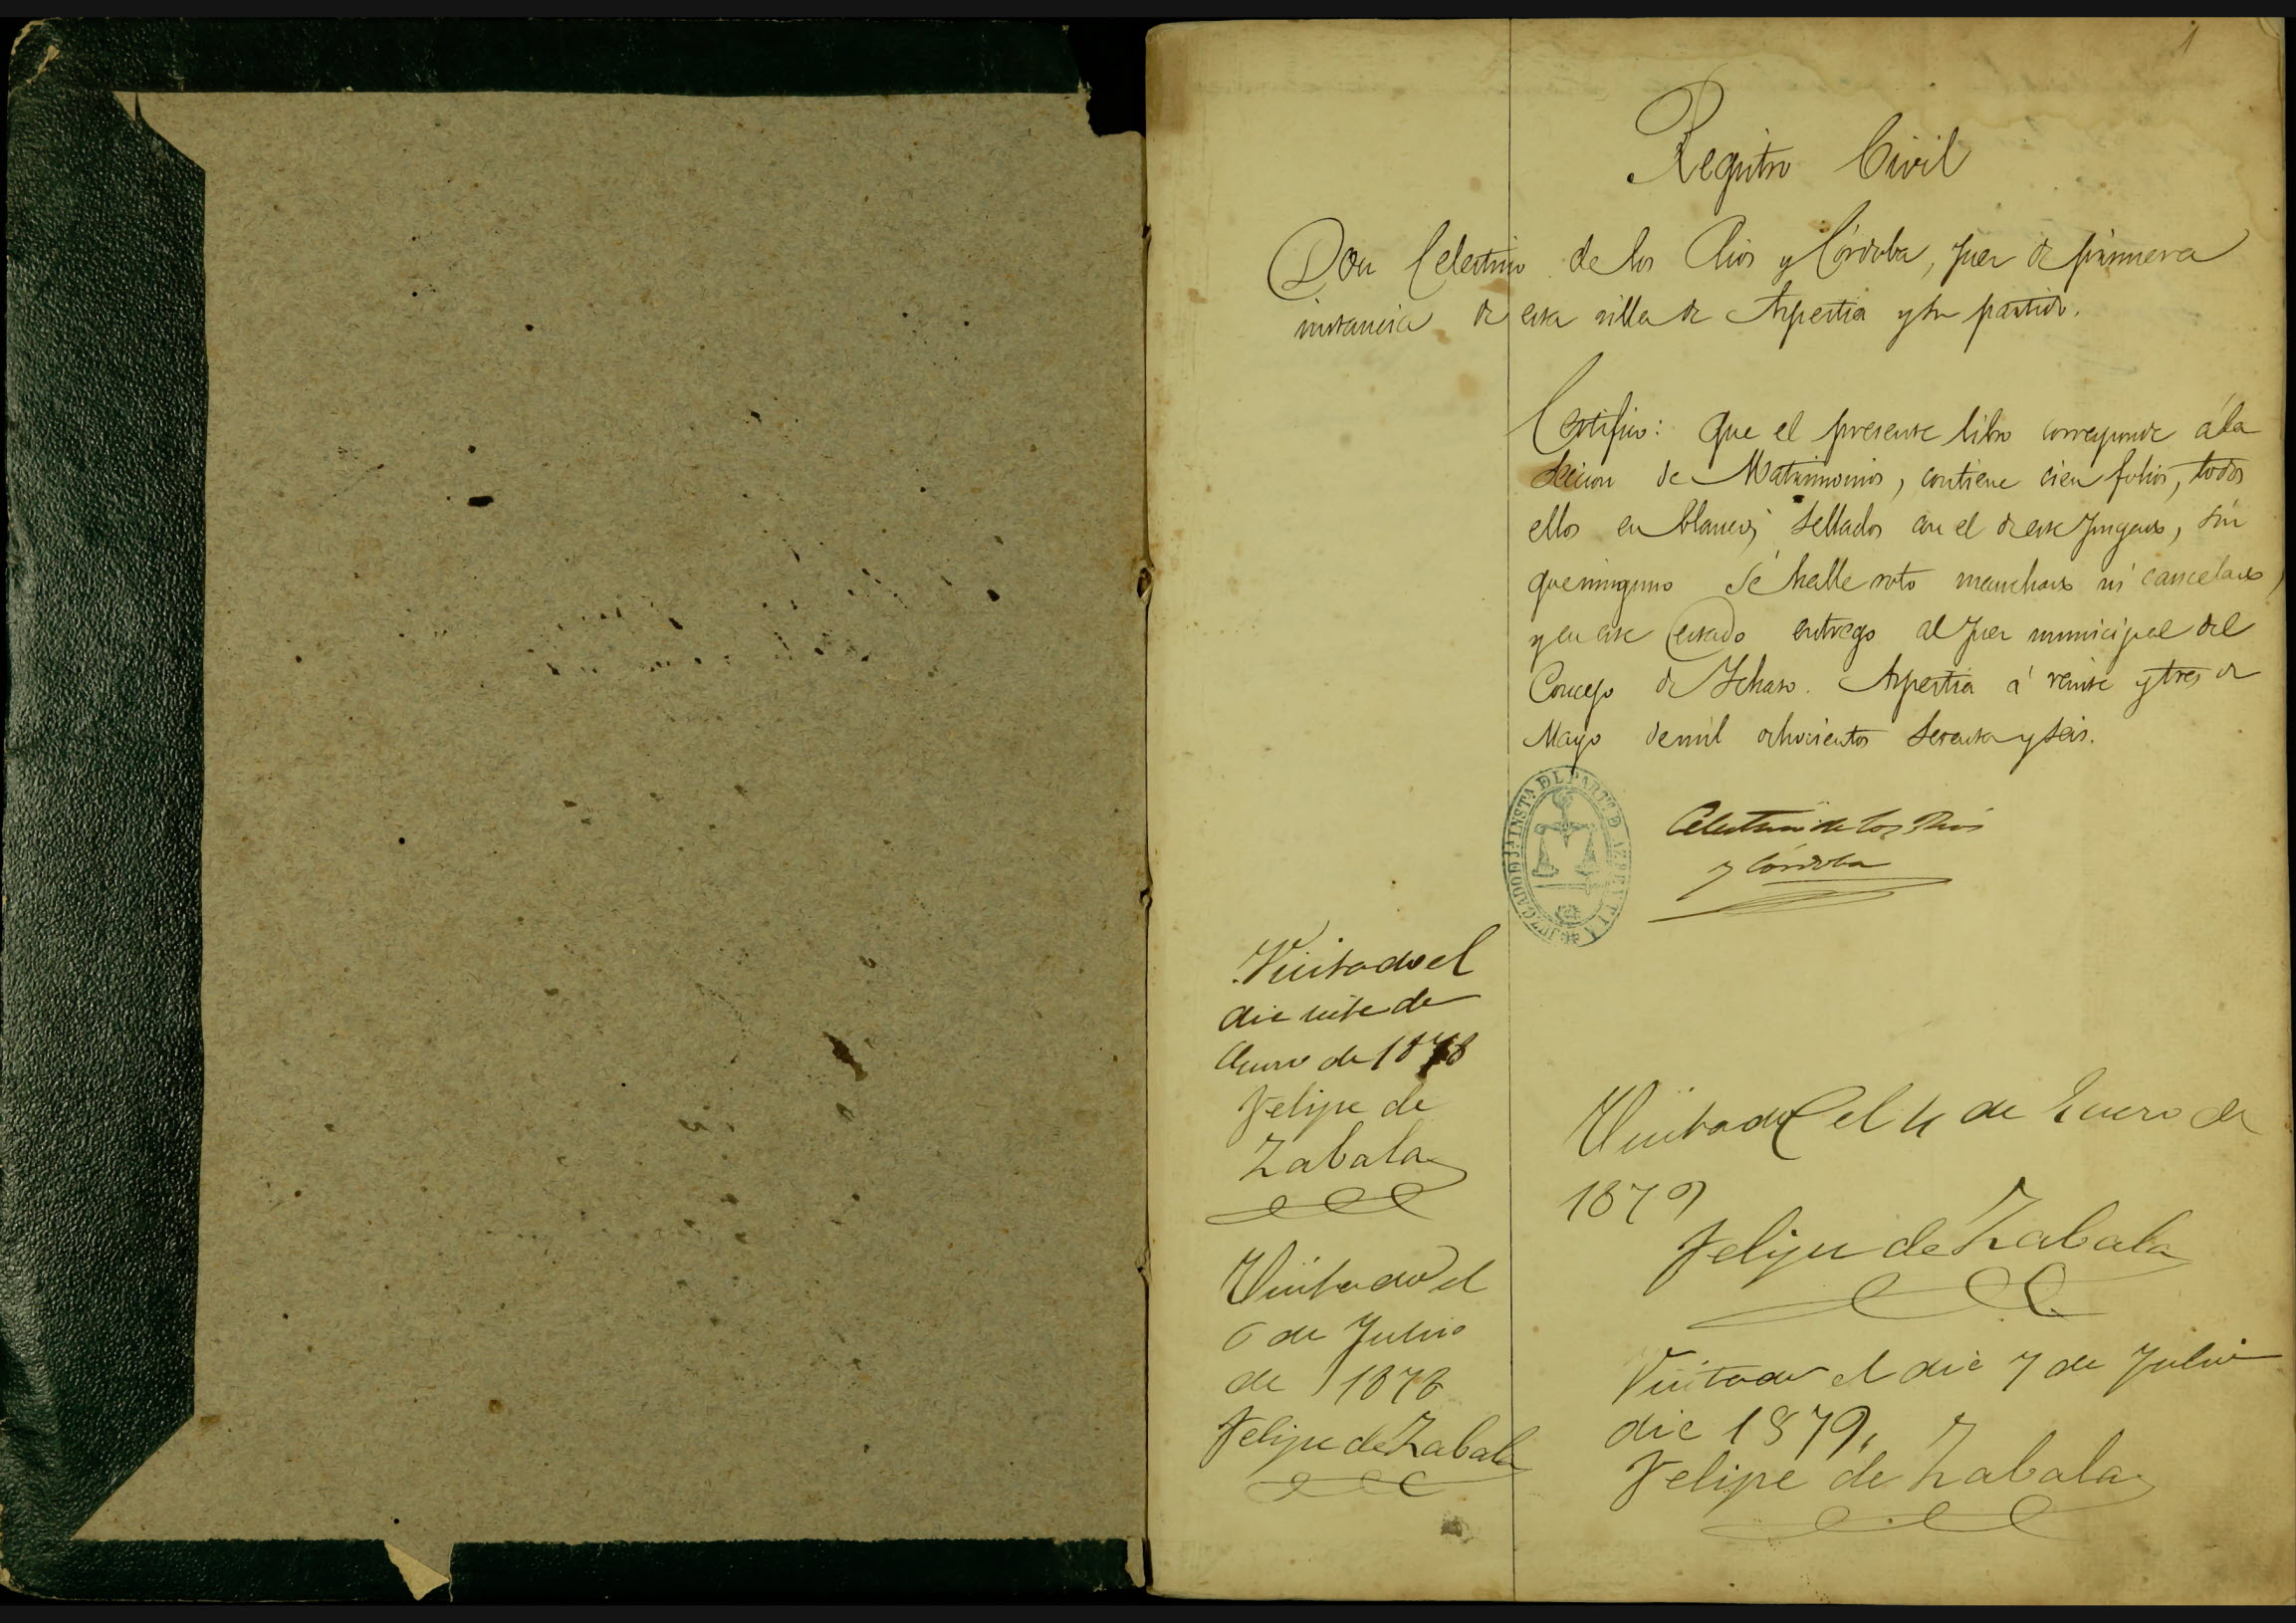 1
Registro Civil
Don Celestino de los Rios y Córdoba, Juez de primera
instancia de esta villa de Azpeitia y su partido.
Certifico: Que el presente libro corresponde á la
Seccion de Matrimonios, contiene cien folios, todos
ellos en blanco, sellados con el de este Juzgado, sin
que ninguno se halle roto manchado ni cancelado,
y en este estado entrego al Juez municipal del
Concejo de Ichaso. Azpeitia á veinte y tres de
Mayo de mil ochocientos setenta y seis.
JUZGADO DE 1ª INSTª DEL PARTº D AZPEITIA
Celestino de los Rios
y Córdoba
Visitado el
dia siete de
Enero de 1878
Felipe de
Zabala
Visitado el
6 de Julio
de 1878
Felipe de Zabala
Visitado el 4 de Enero de
1879
Felipe de Zabala
Visitado el dia 7 de Julio
die 1879,
Felipe de Zabala